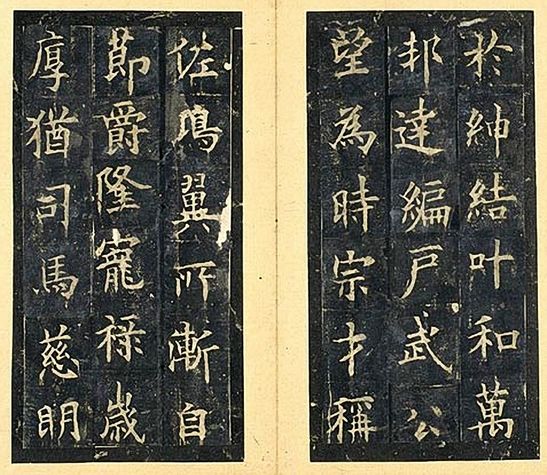 於紳結叶和萬
邦達編戸武公
望為時宗才稱
佐鴻翼所漸自
節爵隆寵禄歲
厚猶司馬慈明